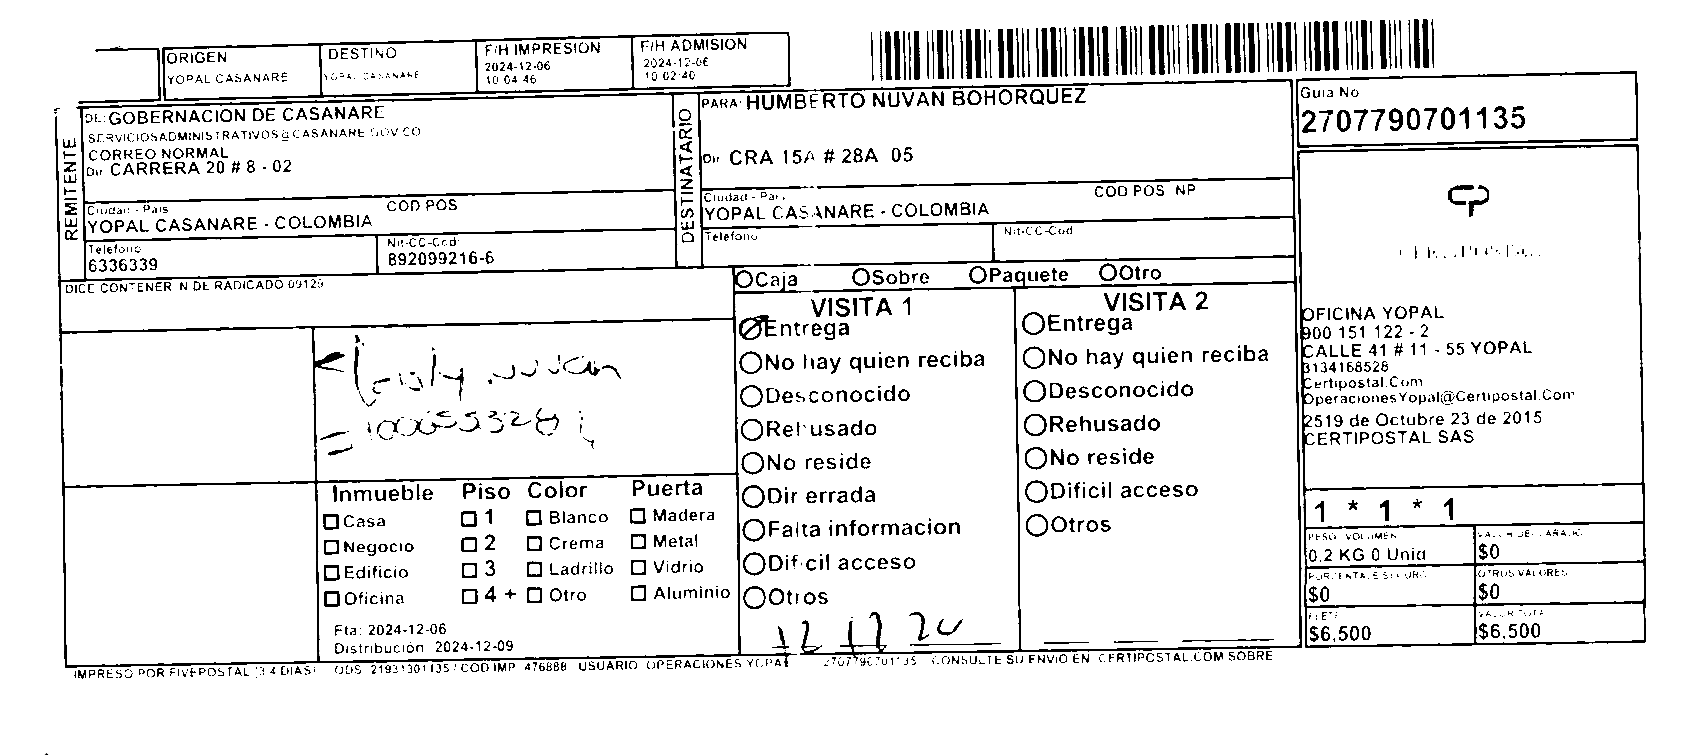 ORIGEN
YOPAL CASANARE
DESTINO
YOPAL CASANARE
F/H IMPRESION
2024-12-06
10 04 46
F/H ADMISION
2024-12-06
10 02 40
REMITENTE
DE: GOBERNACION DE CASANARE
SERVICIOSADMINISTRATIVOS@CASANARE GOV CO
CORREO NORMAL
Dir CARRERA 20 # 8 - 02
Ciudad - Pais
COD POS
YOPAL CASANARE - COLOMBIA
Telefono
6336339
Nit-CC-Cod:
892099216-6
DESTINATARIO
PARA: HUMBERTO NUVAN BOHORQUEZ
Dir CRA 15A # 28A 05
Ciudad - Pais
COD POS NP
YOPAL CASANARE - COLOMBIA
Telefono
Nit-CC-Cod
Guia No
2707790701135
DICE CONTENER N DE RADICADO 09129
Caja Sobre Paquete Otro
VISITA 1
Entrega
No hay quien reciba
Desconocido
Rehusado
No reside
Dir errada
Falta informacion
Dificil acceso
Otros
VISITA 2
Entrega
No hay quien reciba
Desconocido
Rehusado
No reside
Dificil acceso
Otros
Inmueble Piso Color Puerta
Casa 1 Blanco Madera
Negocio 2 Crema Metal
Edificio 3 Ladrillo Vidrio
Oficina 4 + Otro Aluminio
Fta: 2024-12-06
Distribución 2024-12-09
OFICINA YOPAL
900 151 122 - 2
CALLE 41 # 11 - 55 YOPAL
3134168528
Certipostal.Com
OperacionesYopal@Certipostal.Com
2519 de Octubre 23 de 2015
CERTIPOSTAL SAS
1 * 1 * 1
0.2 KG 0 Unid
$0
$0
OTROS VALORES
$0
FLETE
$6,500
$6,500
IMPRESO POR FIVEPOSTAL (3 4 DIAS) ODS 21931301135 / COD IMP 476888 USUARIO OPERACIONES YOPAL 2707790701135 CONSULTE SU ENVIO EN CERTIPOSTAL.COM SOBRE